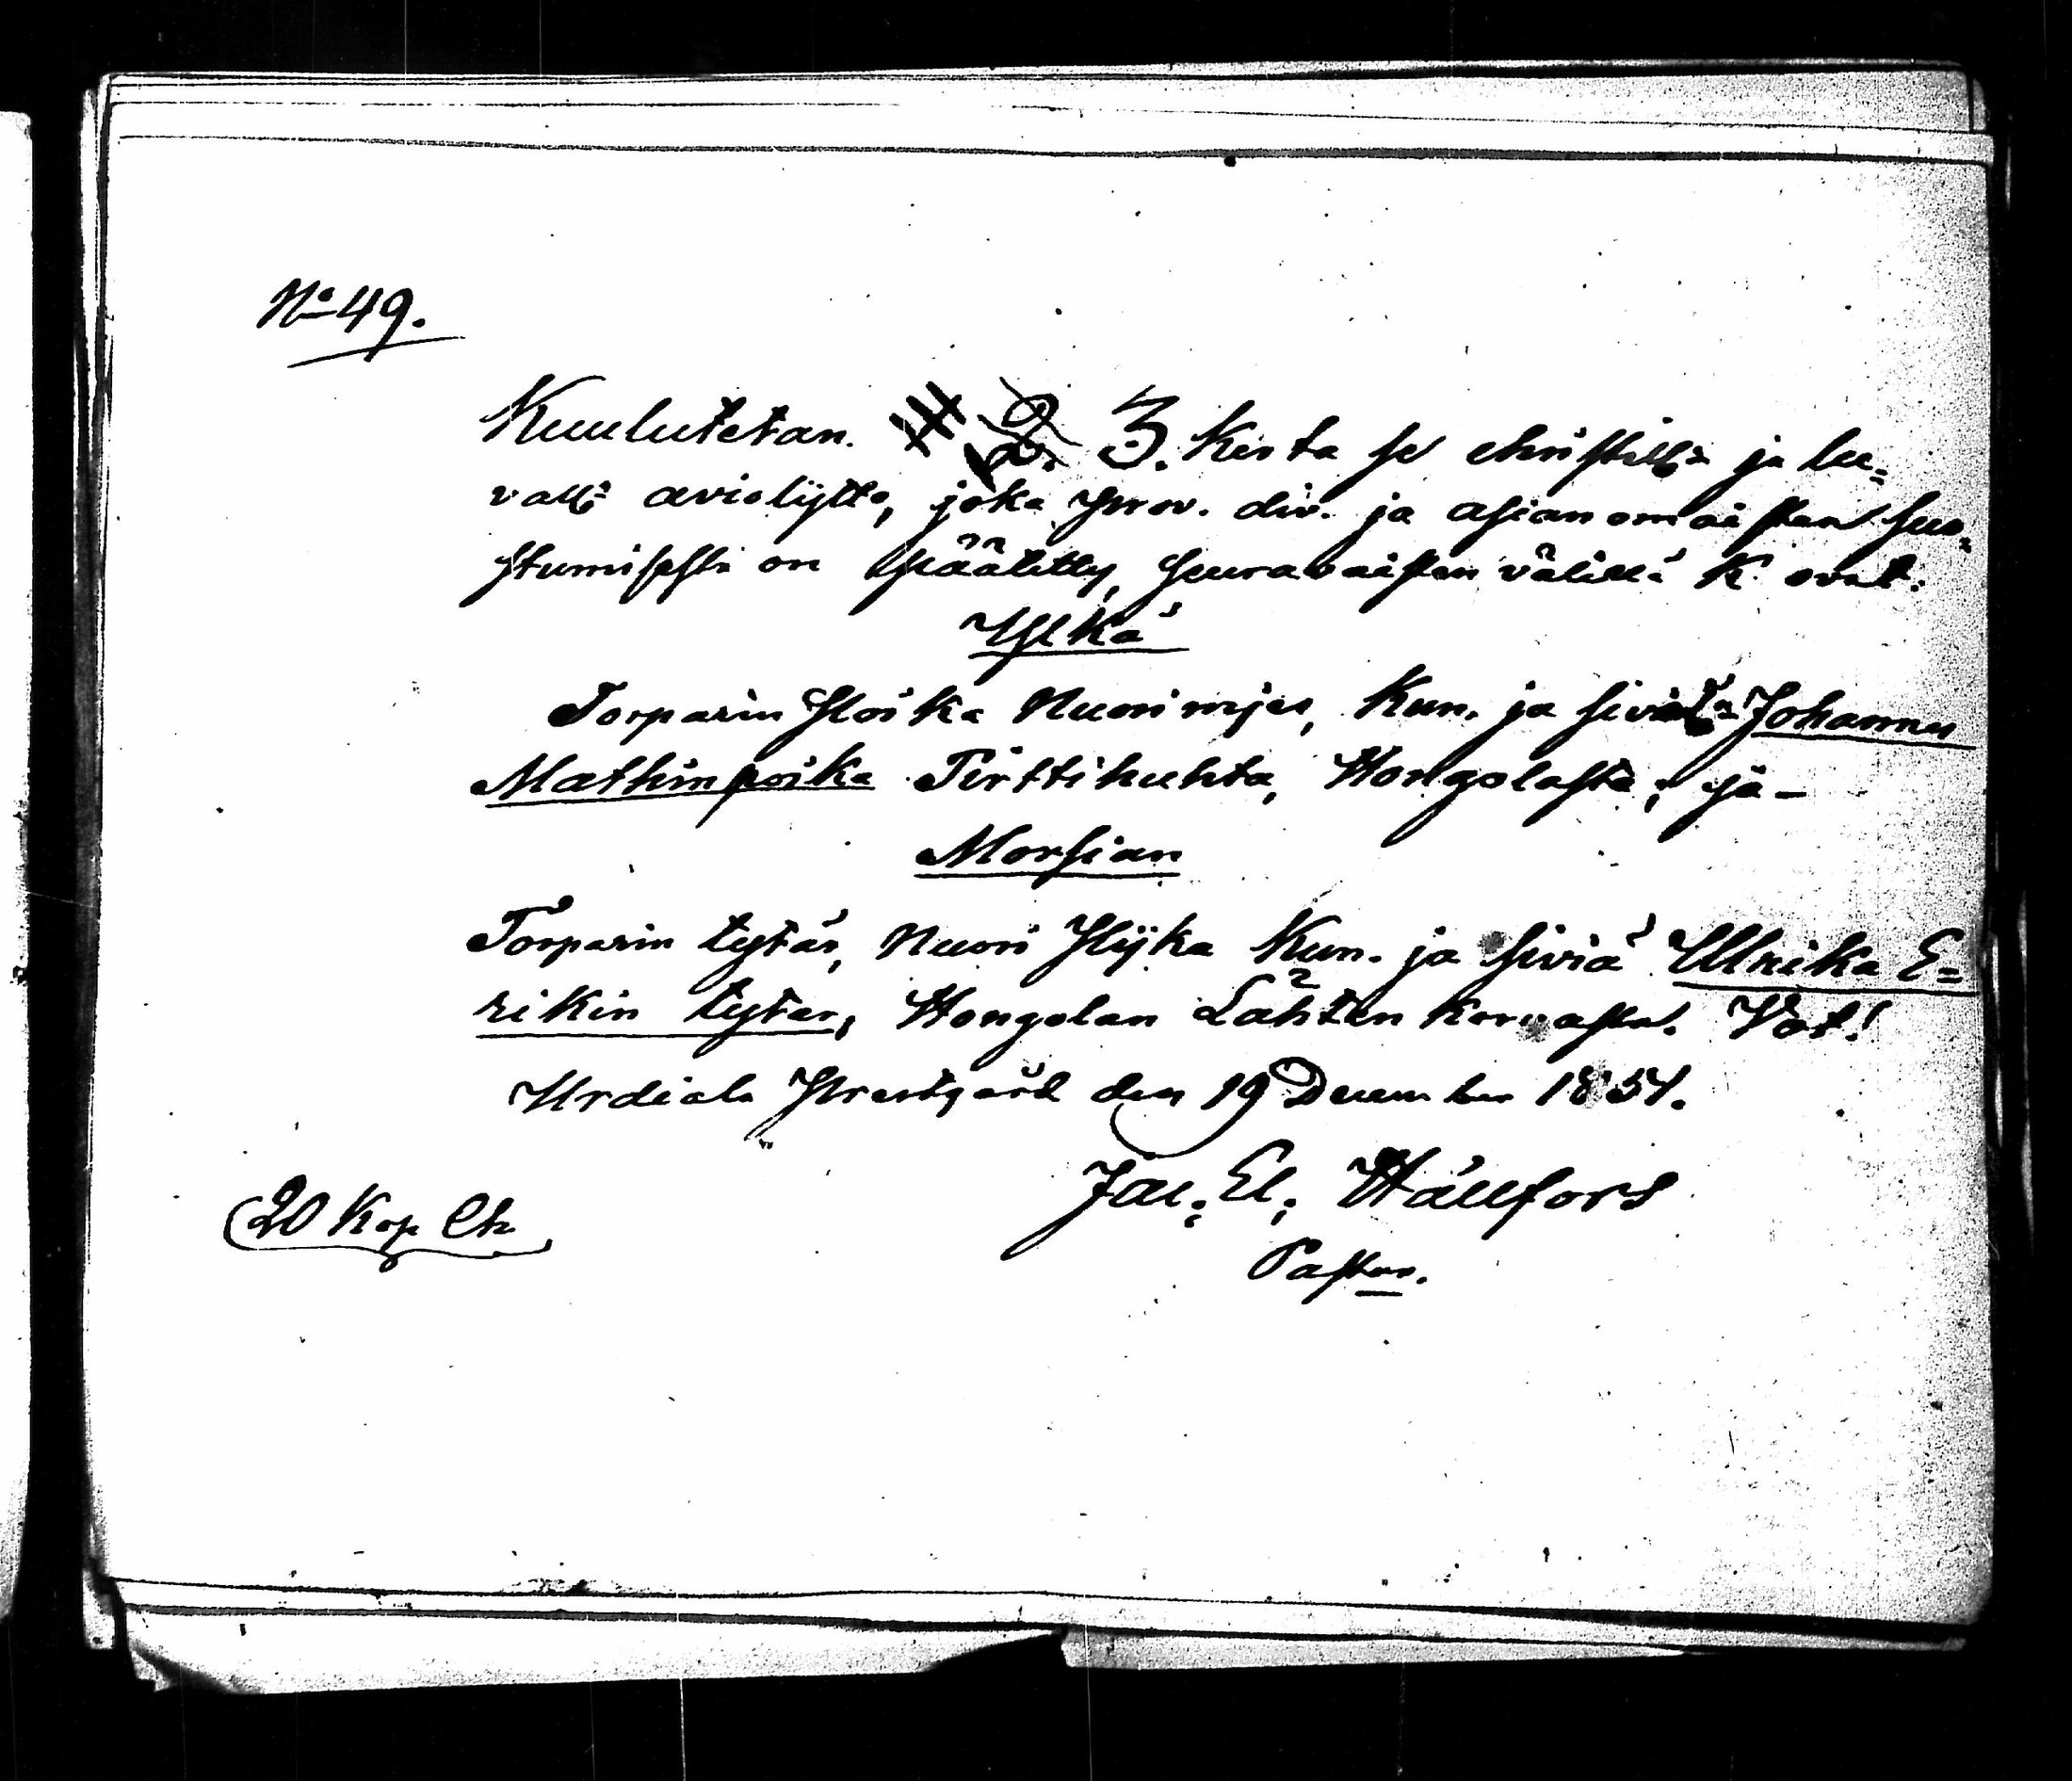 No 49.
Kuulutetan. 2. 3. Kerta se christilli: ja lu=
valli: avioliytto, joka prov. div. ja asianomaisten suo=
stumisesta on päätetty, seuravaisten välillä K. ovat:
Ylkä
Torparin Poika Nuori mjes, Kun. ja siviä Johannes
Mathin poika Pirttikuhta, Hongolasta; ja –
Morsian
Torparin tytär, Nuori Pijka Kun. ja siviä Ullrika E=
rikin tytär, Hongolan Lähten korvasta. Vot!
Urdiala Prestgård den 19 December 1854.
Jac: El: Hällfors
Pastor.
20 Kop